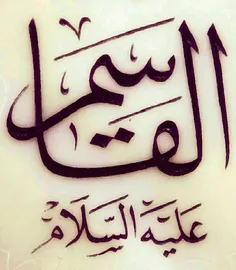 القاسم
عَلَيْهِ السَّلَامْ